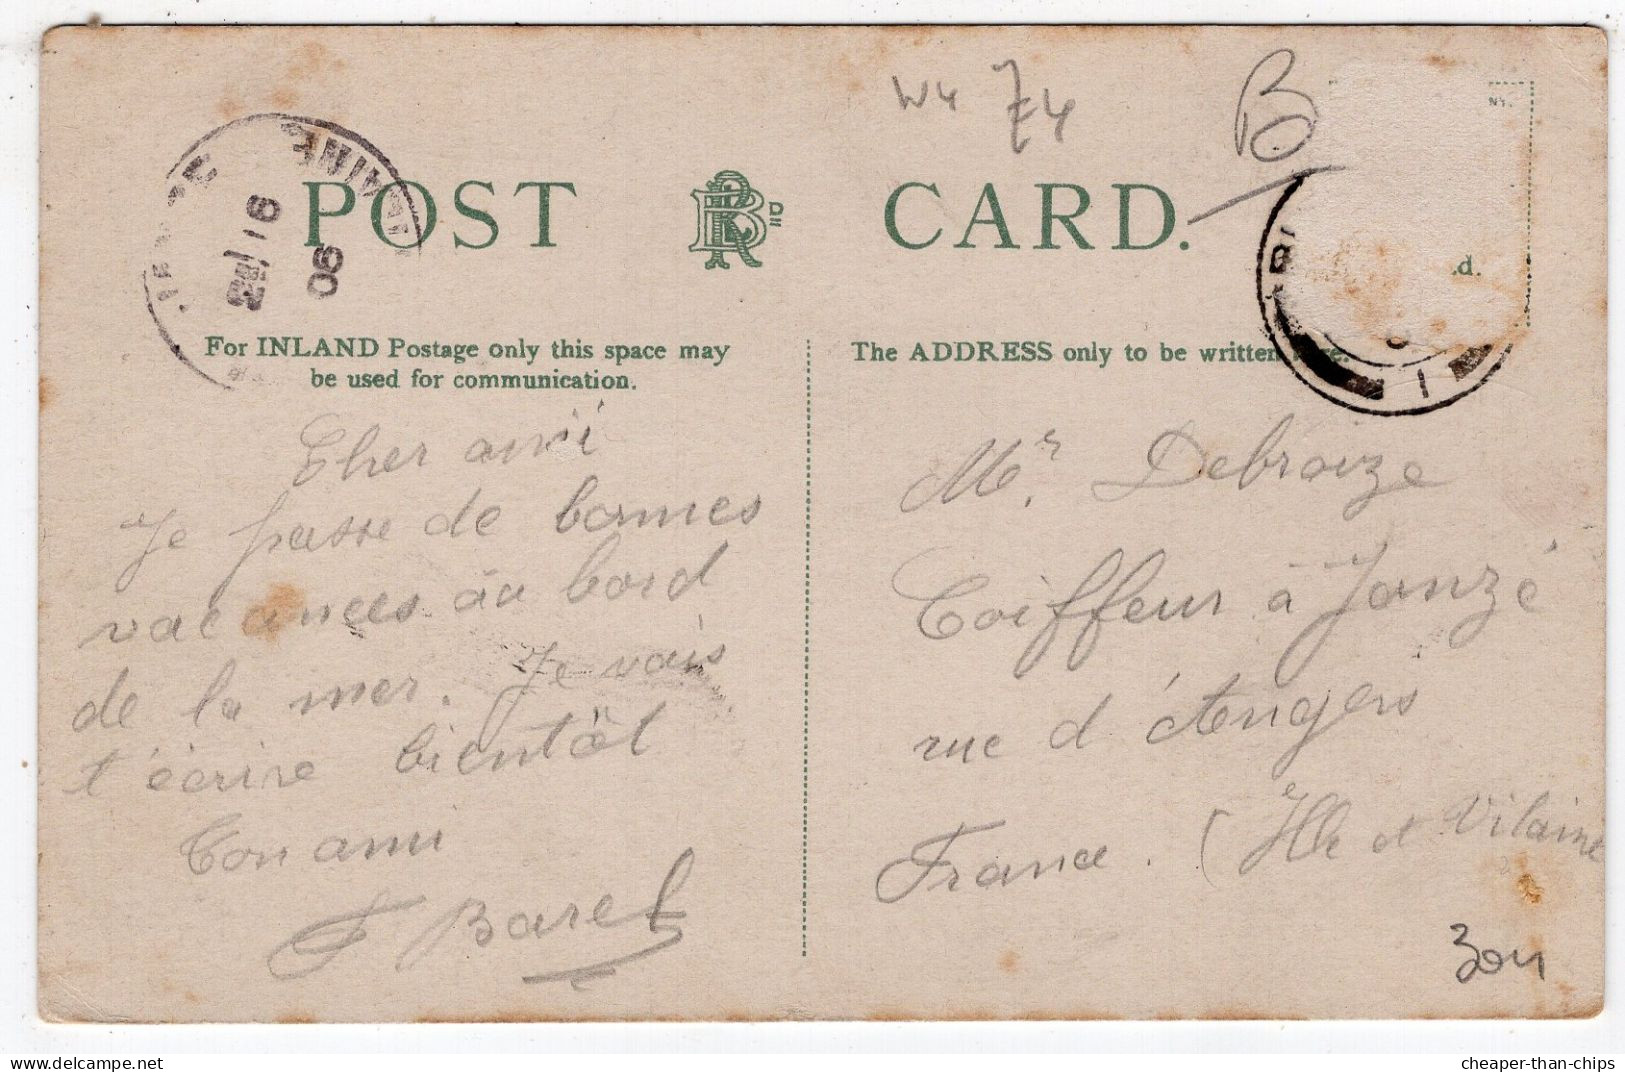 W4 Z4 B
NY.
POST RR Dn CARD.
VILAINE
16
06
d.
1
For INLAND Postage only this space may
be used for communication.
The ADDRESS only to be written here.
Cher ami
Je passe de bonnes
vacances au bord
de la mer. Je vais
t'écrire bientôt
Ton ami
F Barel
Mr. Debroize
Coiffeur à Janzé
rue d'Angers
France. (Ille et Vilaine
304
cheaper-than-chips